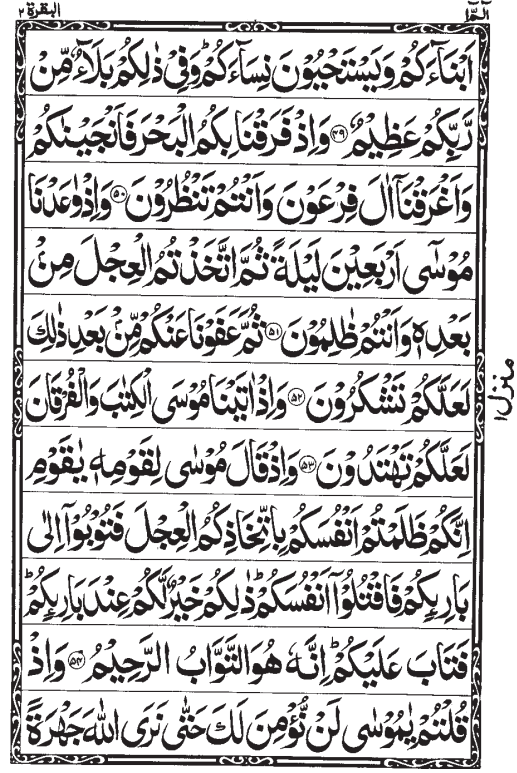 الٓمّٓ ١
البقرة ٢
اَبْنَآءَكُمْ وَيَسْتَحْيُوْنَ نِسَآءَكُمْ ؕ وَفِيْ ذٰلِكُمْ بَلَآءٌ مِّنْ
رَّبِّكُمْ عَظِيْمٌ ﴿۴۹﴾ وَاِذْ فَرَقْنَا بِكُمُ الْبَحْرَ فَاَنْجَيْنٰكُمْ
وَاَغْرَقْنَآ اٰلَ فِرْعَوْنَ وَاَنْتُمْ تَنْظُرُوْنَ ﴿۵۰﴾ وَاِذْ وٰعَدْنَا
مُوْسٰٓى اَرْبَعِيْنَ لَيْلَةً ثُمَّ اتَّخَذْتُمُ الْعِجْلَ مِنْۢ
بَعْدِهٖ وَاَنْتُمْ ظٰلِمُوْنَ ﴿۵۱﴾ ثُمَّ عَفَوْنَا عَنْكُمْ مِّنْۢ بَعْدِ ذٰلِكَ
لَعَلَّكُمْ تَشْكُرُوْنَ ﴿۵۲﴾ وَاِذْ اٰتَيْنَا مُوْسَى الْكِتٰبَ وَالْفُرْقَانَ
لَعَلَّكُمْ تَهْتَدُوْنَ ﴿۵۳﴾ وَاِذْ قَالَ مُوْسٰى لِقَوْمِهٖ يٰقَوْمِ
اِنَّكُمْ ظَلَمْتُمْ اَنْفُسَكُمْ بِاتِّخَاذِكُمُ الْعِجْلَ فَتُوْبُوْٓا اِلٰى
بَارِئِكُمْ فَاقْتُلُوْٓا اَنْفُسَكُمْ ؕ ذٰلِكُمْ خَيْرٌ لَّكُمْ عِنْدَ بَارِئِكُمْ ؕ
فَتَابَ عَلَيْكُمْ ؕ اِنَّهٗ هُوَ التَّوَّابُ الرَّحِيْمُ ﴿۵۴﴾ وَاِذْ
قُلْتُمْ يٰمُوْسٰى لَنْ نُّؤْمِنَ لَكَ حَتّٰى نَرَى اللّٰهَ جَهْرَةً
منزل ١